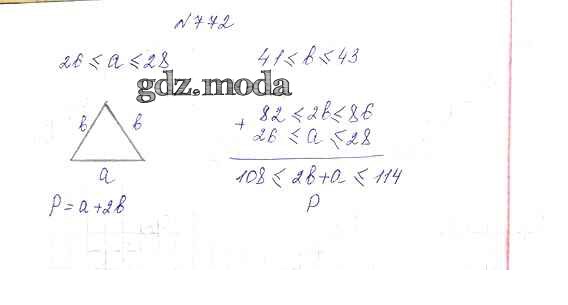 N772
26 ≤ a ≤ 28
41 ≤ b ≤ 43
gdz.moda
b b
a
P = a + 2b
+ 82 ≤ 2b ≤ 86
26 ≤ a ≤ 28
108 ≤ 2b + a ≤ 114
P